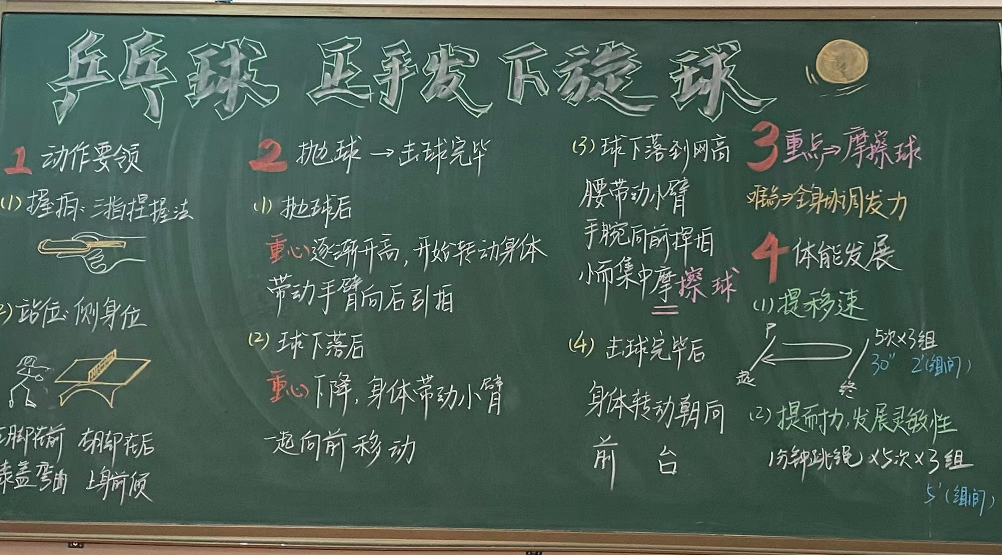 乒乓球 正手发下旋球
1 动作要领
(1) 握拍: 三指捏握法
(2) 站位: 侧身位
左脚在前 右脚在后
膝盖弯曲 上身前倾
2 抛球→击球完毕
(1) 抛球后
重心逐渐升高,开始转动身体
带动手臂向后引拍
(2) 球下落后
重心下降,身体带动小臂
一起向前移动
(3) 球下落到网高
腰带动小臂
手腕向前挥拍
小而集中摩擦球
(4) 击球完毕后
身体转动朝向
前台
3 重点⇒摩擦球
难点⇒全身协调发力
4 体能发展
(1) 提移速
5次×3组
30" 2'(组间)
起 终
(2) 提耐力,发展灵敏性
1分钟跳绳×5次×3组
5'(组间)